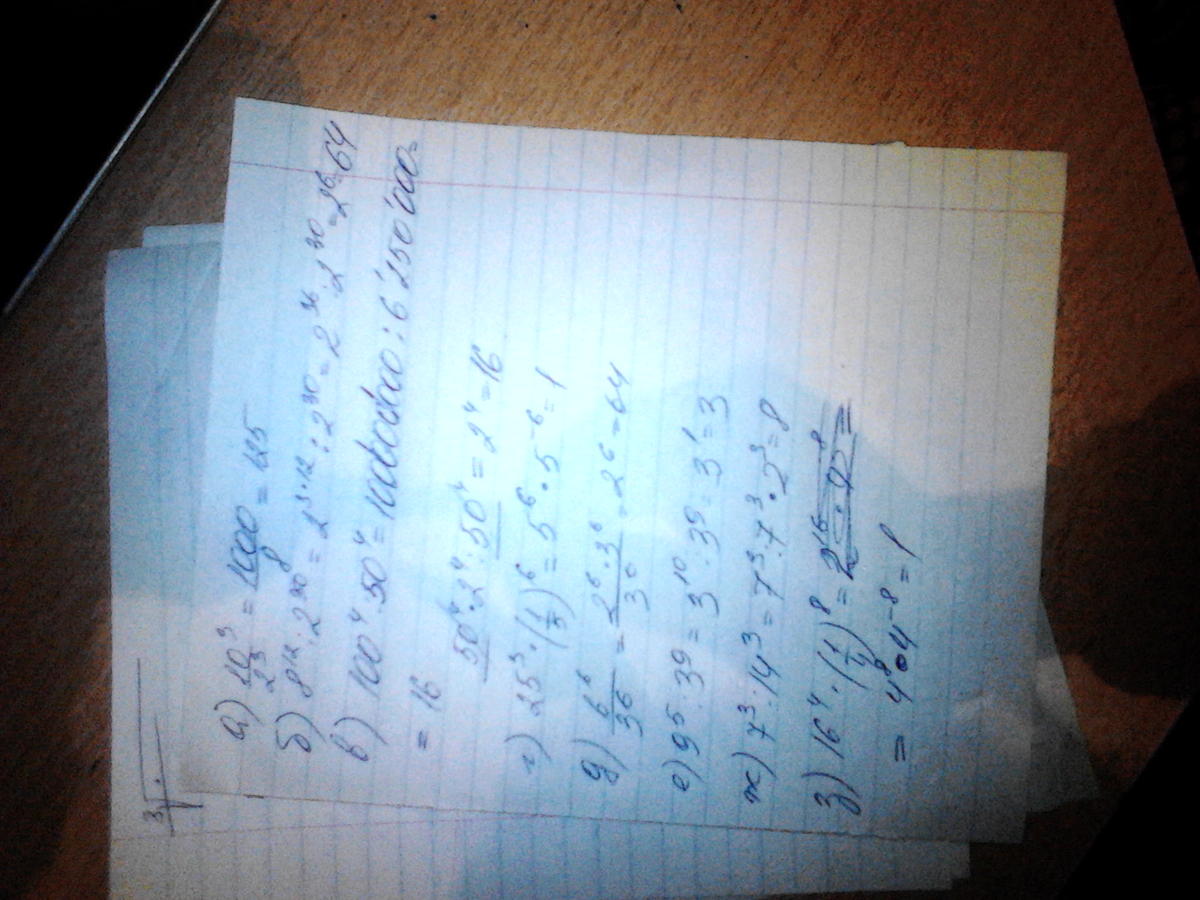 а) 10³/2³ = 1000/8 = 125
б) 8¹² : 2³⁰ = 2³·¹² : 2³⁰ = 2³⁶ : 2³⁰ = 2⁶ = 64
в) 100⁴ : 50⁴ = 100000000 : 6250000 =
= 16
50⁴ · 2⁴ : 50⁴ = 2⁴ = 16
г) 25³ · (1/5)⁶ = 5⁶ · 5⁻⁶ = 1
д) 6⁶/3⁶ = 2⁶ · 3⁶/3⁶ = 2⁶ = 64
е) 9⁵ : 3⁹ = 3¹⁰ : 3⁹ = 3¹ = 3
ж) 7³ : 14³ = 7³ : 7³ · 2³ = 8
з) 16⁴ · (1/4)⁸ =
= 4⁸ · 4⁻⁸ = 1